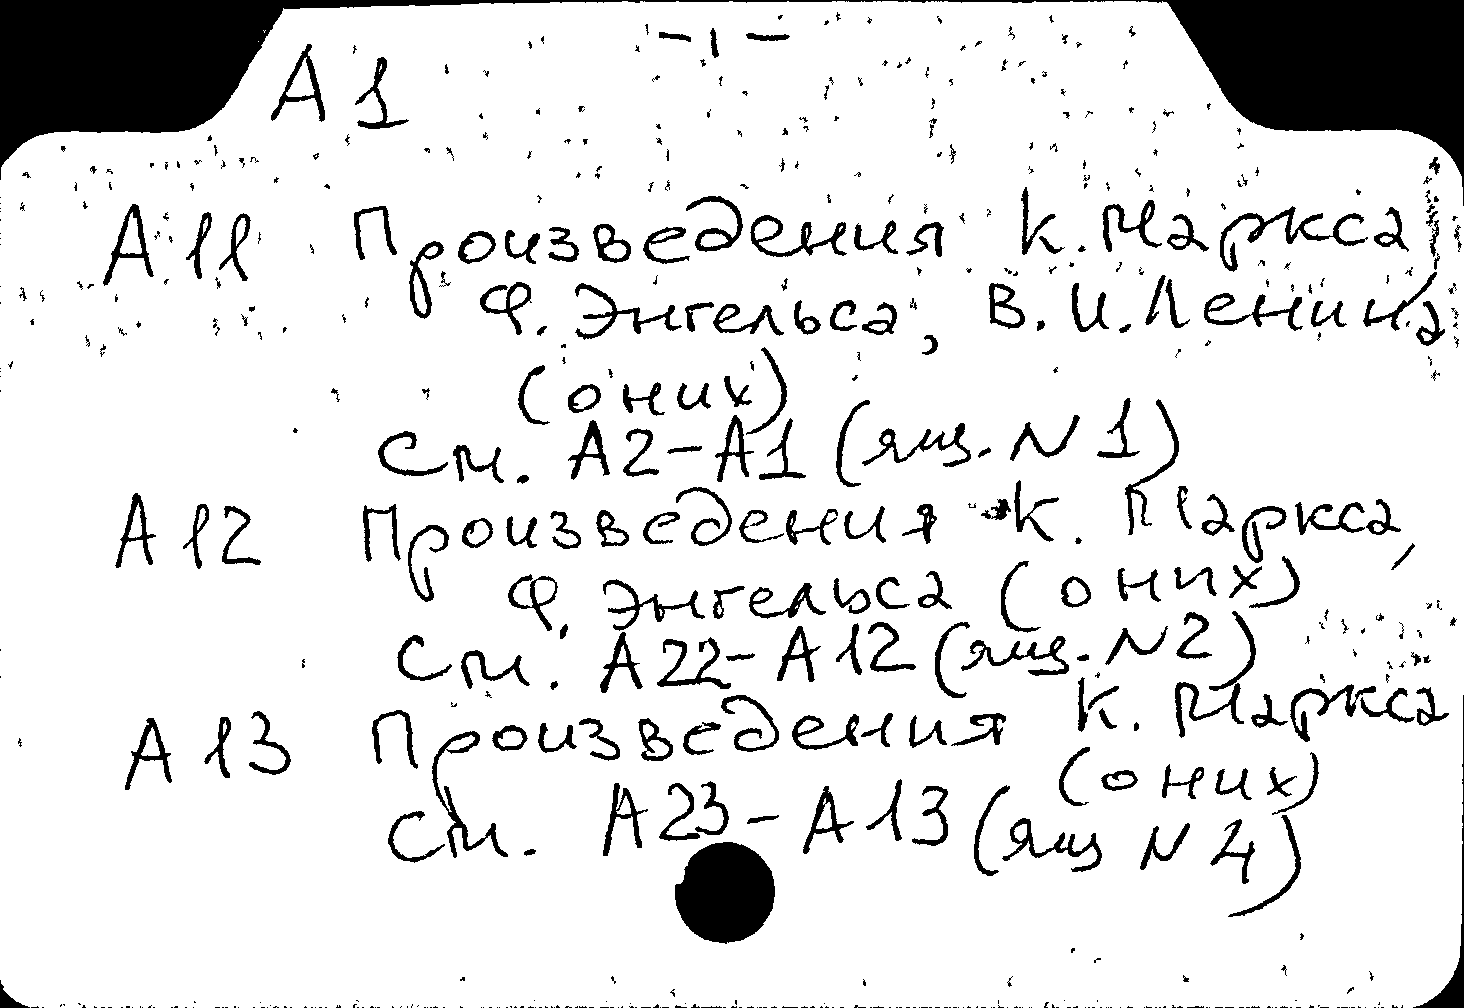 - 1 -
А 1
А 11 Произведения К. Маркса,
Ф. Энгельса, В. И. Ленина
(о них)
См. А2-А1 (ящ. N 1)
А 12 Произведения К. Маркса,
Ф. Энгельса (о них)
См. А22-А12 (ящ. N2)
А 13 Произведения К. Маркса
(о них)
См. А23-А13 (ящ N 4)